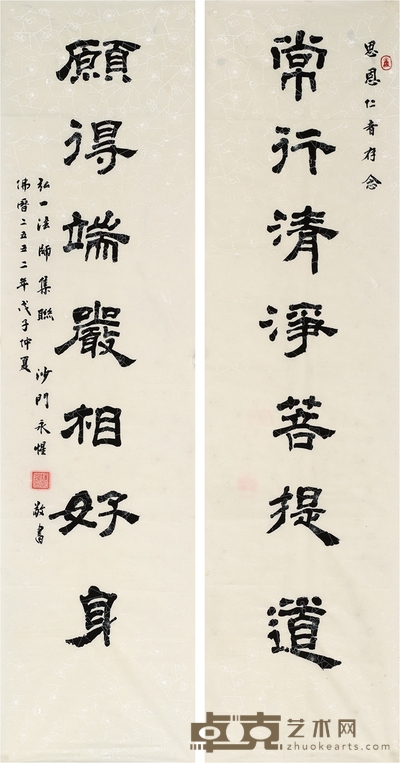 思恩仁者存念
常行清淨菩提道
願得端嚴相好身
弘一法師集聯 沙門永惺 敬書
佛曆二五五二年戊子仲夏
卓克艺术网
zhuokearts.com